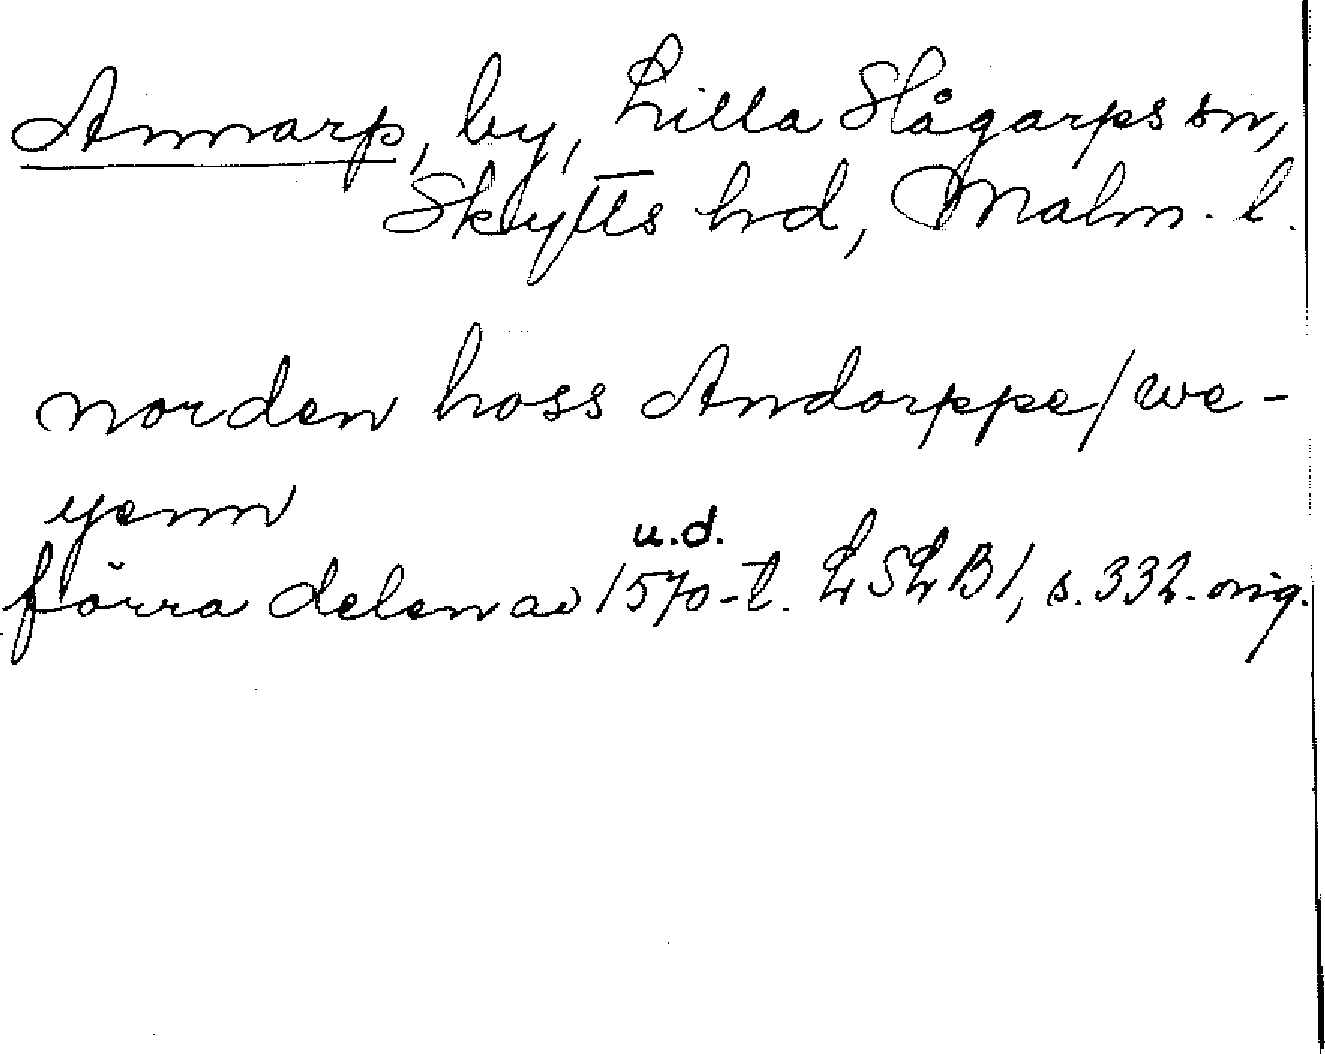 Annarp, by, Lilla Slågarps sn,
Skytts hd, Malm. l.
norden hoss Andarppe/we-
yenn
u.d.
förra delen av 1570-t. LSLB1, s.332. orig.